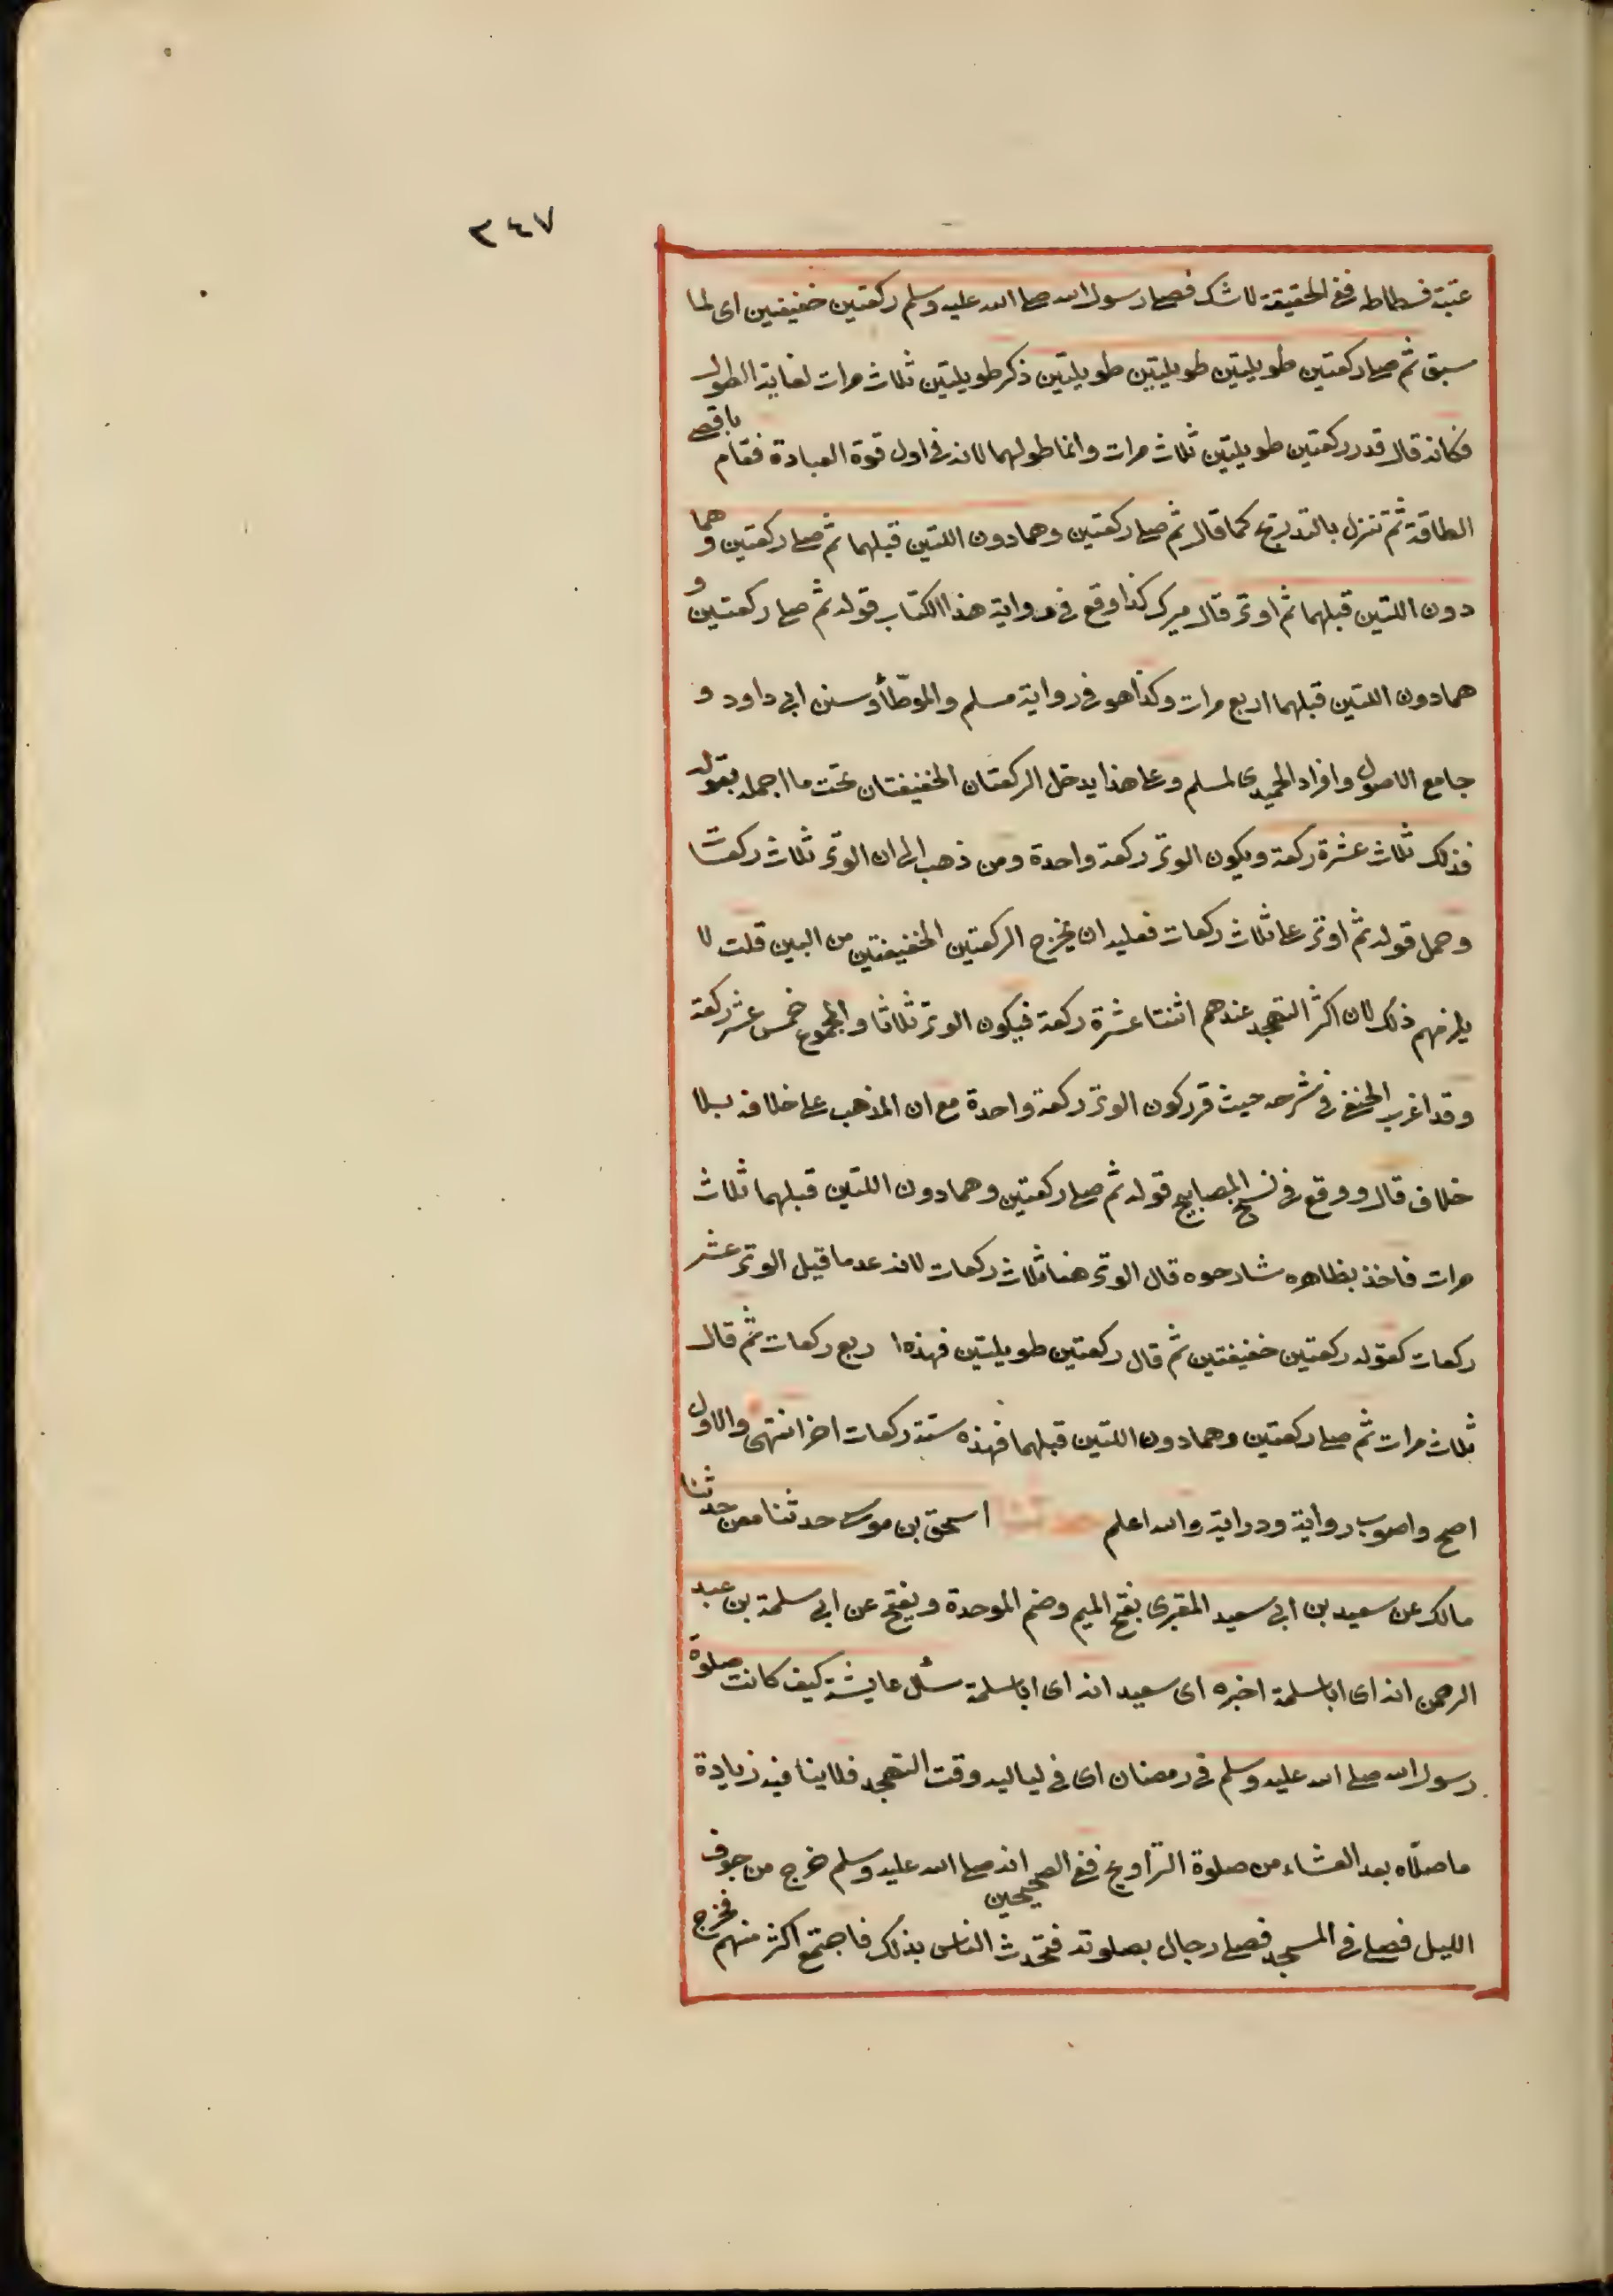 ٢٤٧
عتبة فسطاطه ففي الحقيقة لا شك فصلى رسول الله صلى الله عليه وسلم ركعتين خفيفتين اى لما
سبق ثم صلى ركعتين طويلتين طويلتين طويلتين ذكر طويلتين ثلاث مرات لغاية الطول
فكانه قال قدر ركعتين طويلتين ثلاث مرات وانما طولهما لانه فى اول قوة العبادة فقام باقصى
الطاقة ثم تنزل بالتدريج كما قال ثم صلى ركعتين وهما دون اللتين قبلهما ثم صلى ركعتين وهما
دون اللتين قبلهما ثم اوتر قال ميرك كذا وقع فى رواية هذا الكتاب قوله ثم صلى ركعتين و
هما دون اللتين قبلهما اربع مرات وكذا هو فى رواية مسلم والموطّأ وسنن ابى داود و
جامع الاصول وافراد الحميدى لمسلم وعلى هذا يدخل الركعتان الخفيفتان تحت ما اجمله بقوله
فذلك ثلاث عشرة ركعة ويكون الوتر ركعة واحدة ومن ذهب الى ان الوتر ثلاث ركعات
وحمل قوله ثم اوتر على ثلاث ركعات فعليه ان يخرج الركعتين الخفيفتين من البين قلت لا
يلزمهم ذلك لان اكثر التهجد عندهم اثنتا عشرة ركعة فيكون الوتر ثلاثا والمجموع خمس عشر ركعة
وقد اغرب الحنفى فى شرحه حيث قرر كون الوتر ركعة واحدة مع ان المذهب على خلافه بلا
خلاف قال ووقع فى نسخ المصابيح قوله ثم صلى ركعتين وهما دون اللتين قبلهما ثلاث
مرات فاخذ بظاهره شارحوه قال الوتر هنا ثلاث ركعات لانه عد ما قبل الوتر عشر
ركعات كقوله ركعتين خفيفتين ثم قال ركعتين طويلتين فهذه اربع ركعات ثم قال
ثلاث مرات ثم صلى ركعتين وهما دون اللتين قبلهما فهذه ستة ركعات اخر انتهى والاول
اصح واصوب رواية ودراية والله اعلم حدثنا اسحق بن موسى حدثنا معن حدثنا
مالك عن سعيد بن ابى سعيد المقبرى بفتح الميم وضم الموحدة ويفتح عن ابى سلمة بن عبد
الرحمن انه اى ابا سلمة اخبره اى سعيد انه اى ابا سلمة سئل عايشة كيف كانت صلوة
رسول الله صلى الله عليه وسلم فى رمضان اى فى لياليه وقت التهجد فلا ينافيه زيادة
ما صلّاه بعد العشاء من صلوة التراويح ففى الصحيحين انه صلى الله عليه وسلم خرج من جوف
الليل فصلى فى المسجد فصلى رجال بصلوته فتحدث الناس بذلك فاجتمع اكثر منهم فخرج